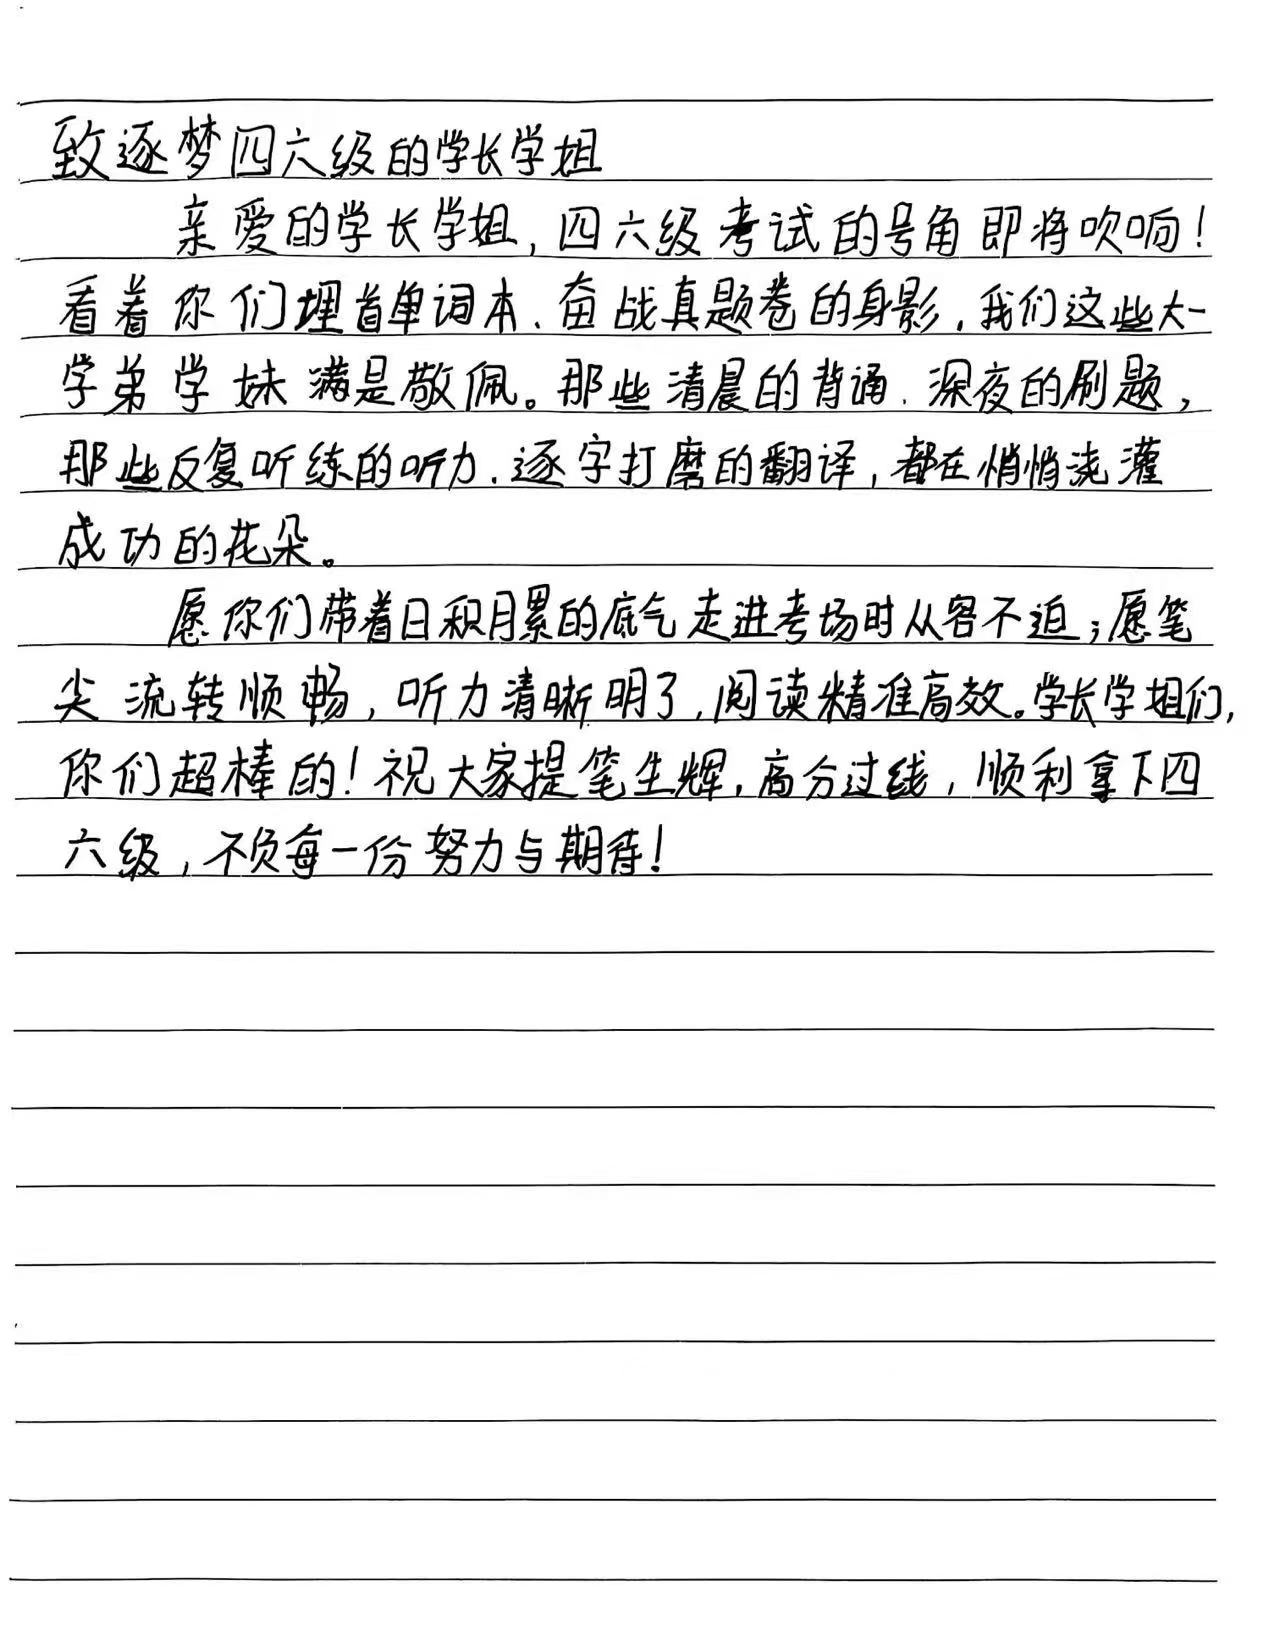 致逐梦四六级的学长学姐
亲爱的学长学姐,四六级考试的号角即将吹响!
看着你们埋首单词本、奋战真题卷的身影,我们这些大一
学弟学妹满是敬佩。那些清晨的背诵、深夜的刷题,
那些反复听练的听力、逐字打磨的翻译,都在悄悄浇灌
成功的花朵。
愿你们带着日积月累的底气走进考场时从容不迫;愿笔
尖流转顺畅,听力清晰明了,阅读精准高效。学长学姐们,
你们超棒的!祝大家提笔生辉,高分过线,顺利拿下四
六级,不负每一份努力与期待!